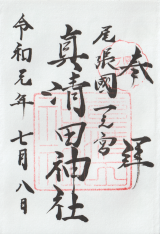 奉拝
尾張國一之宮
真清田神社
令和元年七月八日